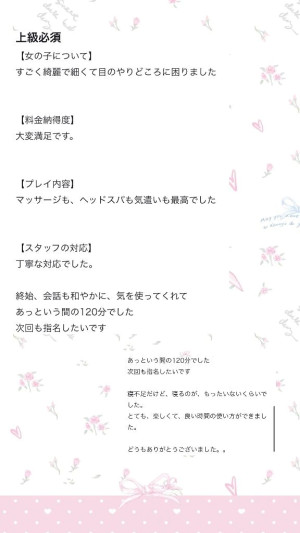 上級必須
【女の子について】
すごく綺麗で細くて目のやりどころに困りました
【料金納得度】
大変満足です。
【プレイ内容】
マッサージも、ヘッドスパも気遣いも最高でした
【スタッフの対応】
丁寧な対応でした。
終始、会話も和やかに、気を使ってくれて
あっという間の120分でした
次回も指名したいです
あっという間の120分でした
次回も指名したいです
寝不足だけど、寝るのが、もったいないくらいで
した。
とても、楽しくて、良い時間の使い方ができまし
た。
どうもありがとうございました。。